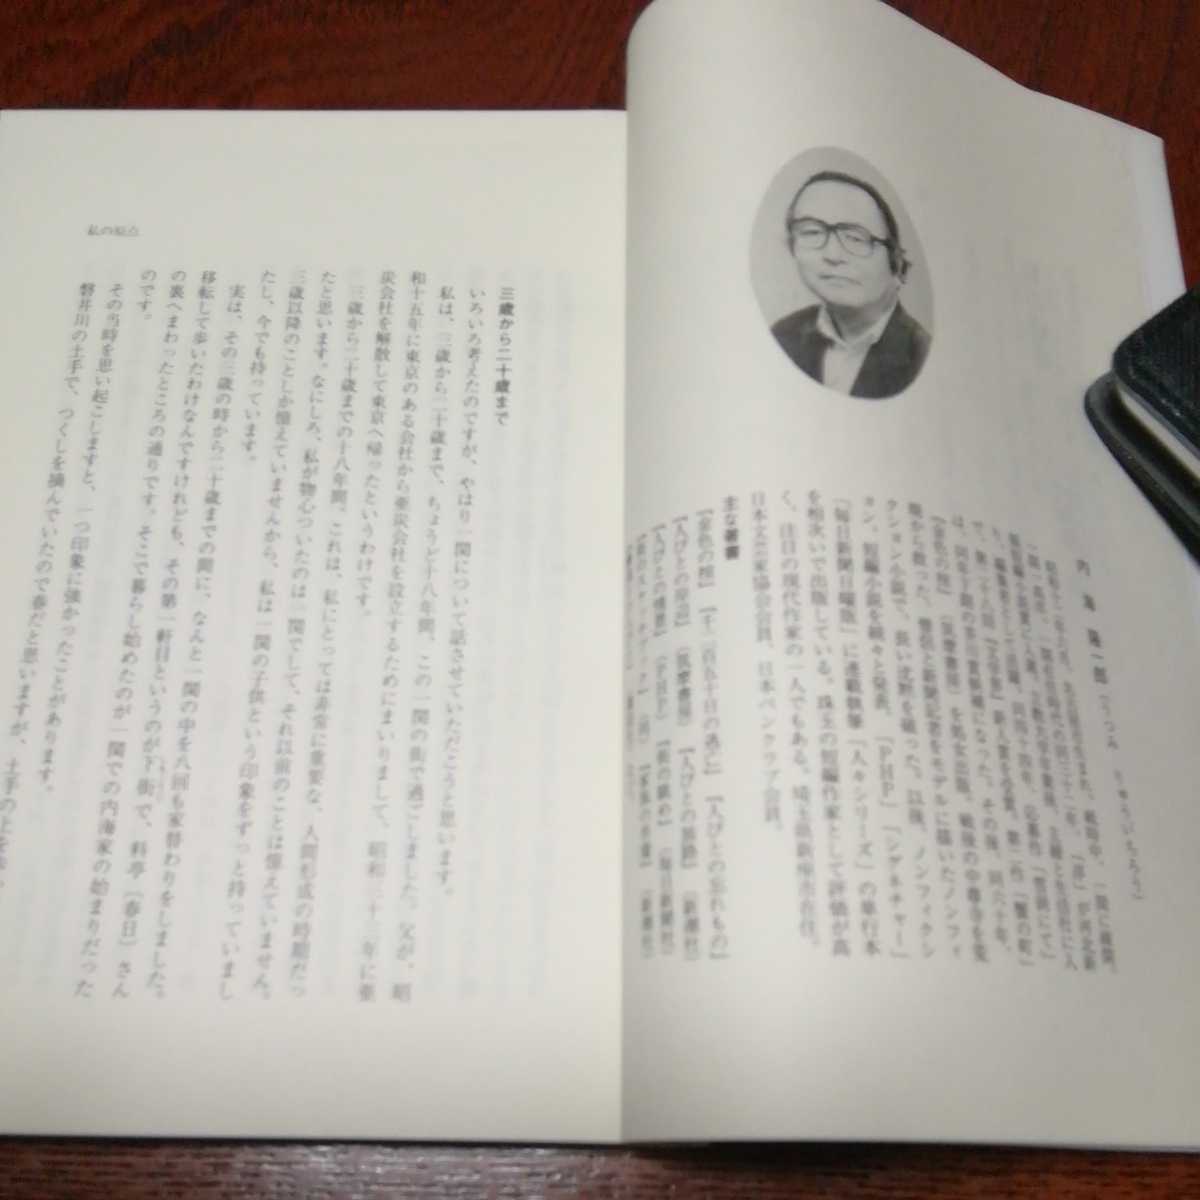 内海隆一郎
で、第二十八回『文学界』新人賞を受賞。第二作「蟹の町」
は、同年下期の芥川賞候補になった。その後、同六十年、
『金色の棺』（筑摩書房）を処女出版。戦後の中尊寺を変
クション小説で、長い沈黙を破った。以後、ノンフィクシ
ョン、短編小説を続々と発表。「PHP」「シグネチャー」
「毎日新聞日曜版」に連載執筆「人々シリーズ」の単行本
を相次いで出版している。珠玉の短編作家として評価が高
く、注目の現代作家の一人でもある。埼玉県新座市在住。
日本文芸家協会会員、日本ペンクラブ会員。
主な著書
『金色の棺』『千二百五十日の逃亡』『人びとの忘れもの』
『人びとの岸辺』（筑摩書房）『人びとの旅路』（新潮社）
『人びとの情景』（PHP）『街の眺め』（毎日新聞）
私の原点
三歳から二十歳まで
いろいろ考えたのですが、やはり一関について話させていただこうと思います。
私は、三歳から二十歳まで、ちょうど十八年間、この一関の街で過ごしました。父が、昭
和十五年に東京のある会社から亜炭会社を設立するためにまいりまして、昭和三十三年に亜
炭会社を解散して東京へ帰ったというわけです。
三歳から二十歳までの十八年間、これは、私にとっては非常に重要な、人間形成の時期だっ
たと思います。なにしろ、私が物心ついたのは一関でして、それ以前のことは憶えていません。
三歳以降のことしか憶えていませんから、私は一関の子供という印象をずっと持っていまし
たし、今でも持っています。
実は、その三歳の時から二十歳までの間に、なんと一関の中を八回も家替わりをしました。
移転して歩いたわけなんですけれども、その第一軒目というのが下街で、料亭〔春日〕さん
の裏へまわったところの通りです。そこで暮らし始めたのが一関での内海家の始まりだった
のです。
その当時を思い起こしますと、一つ印象に強かったことがあります。
磐井川の土手で、つくしを摘んでいたので春だと思いますが、土手の上を